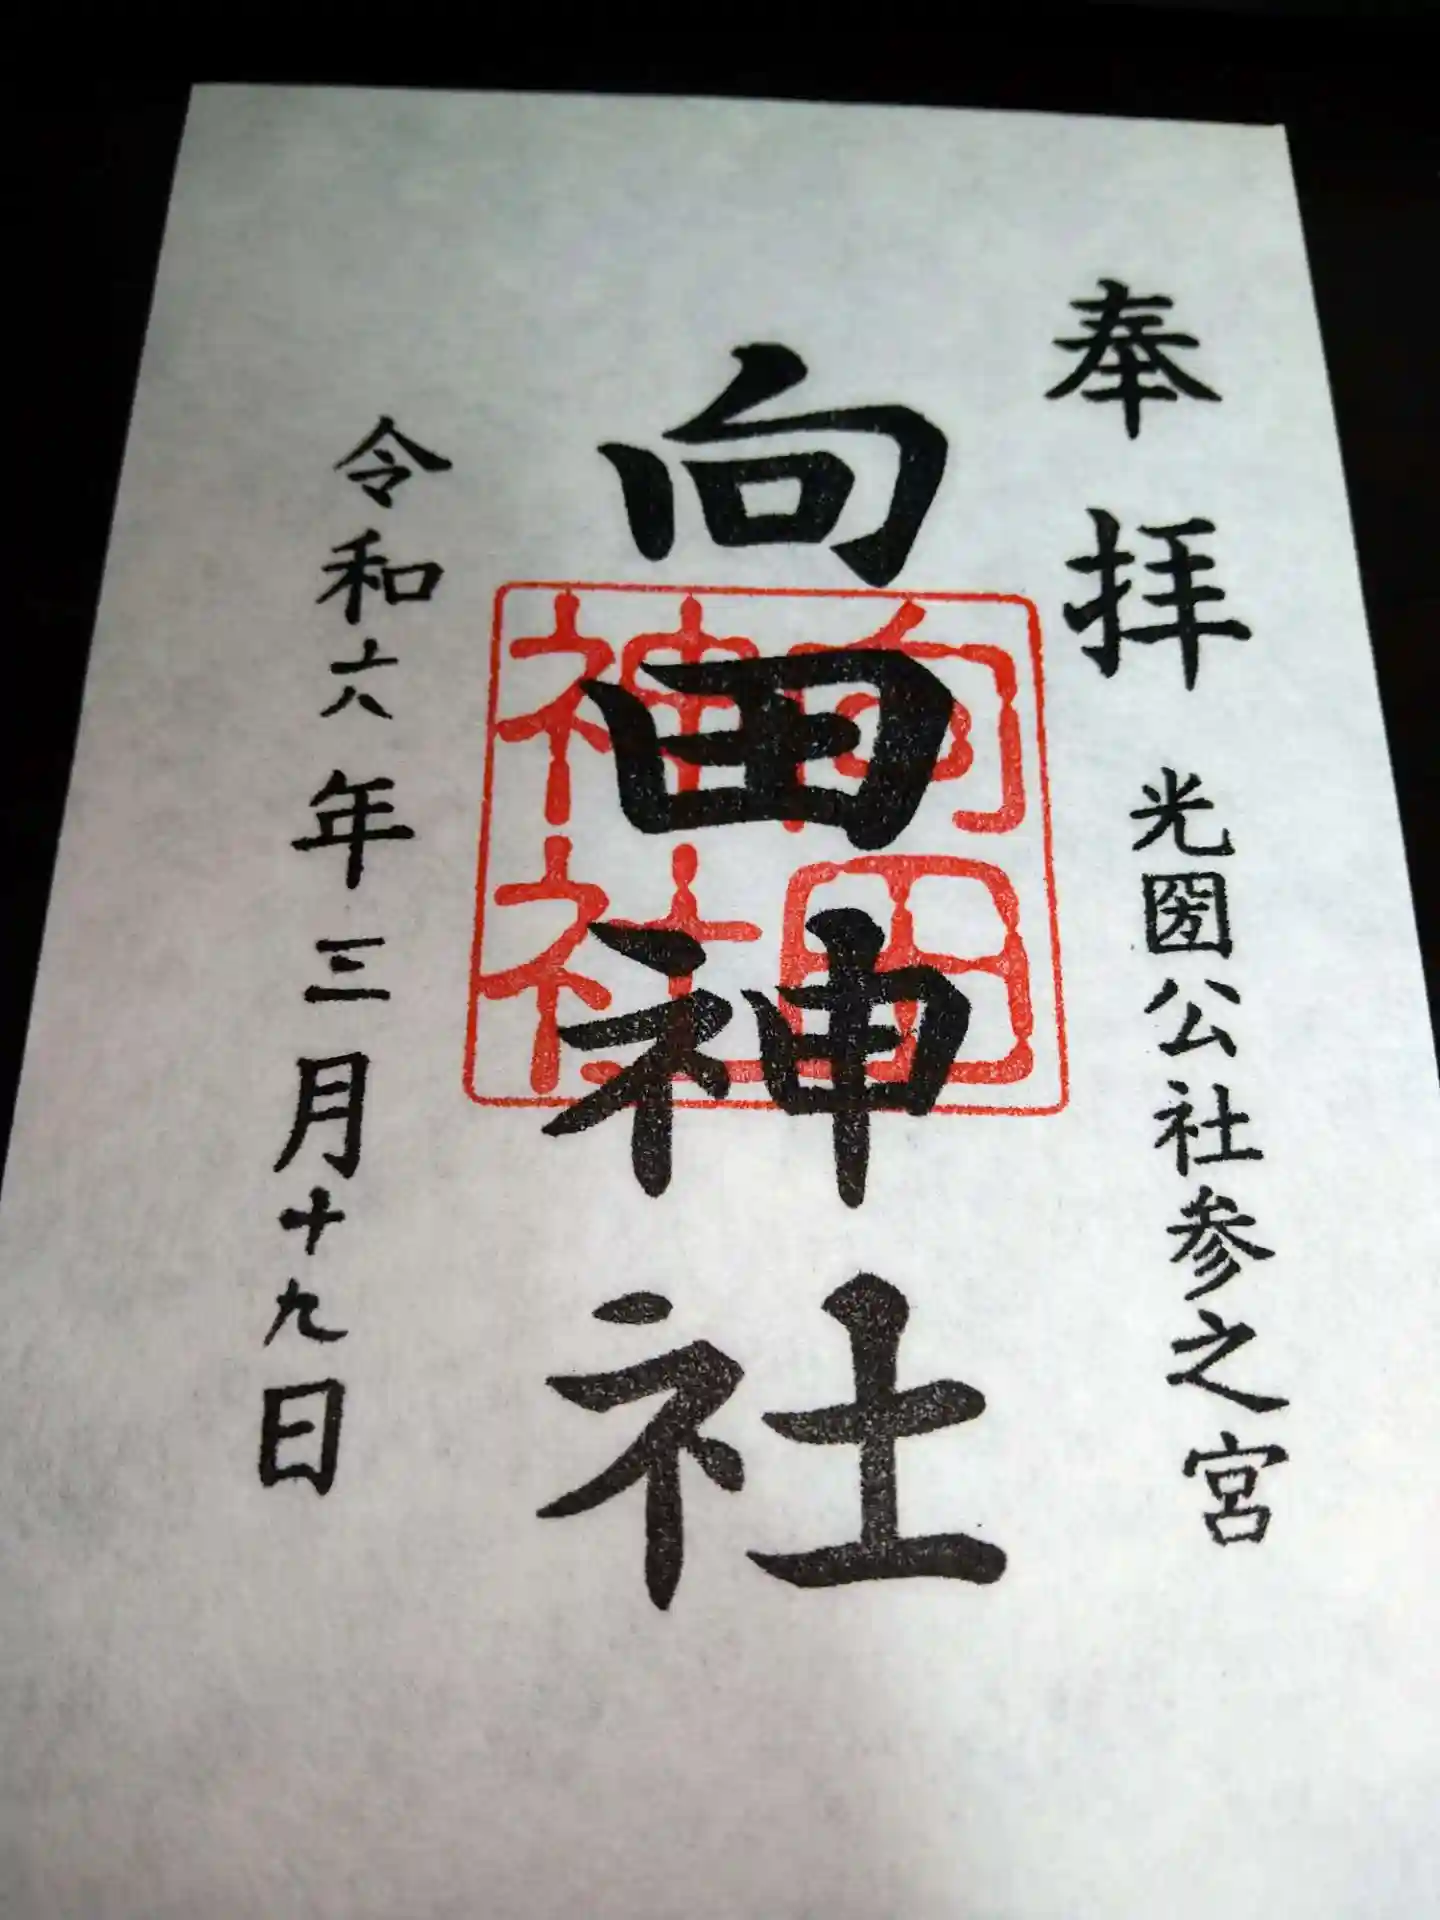 奉拝
光圀公社参之宮
向田神社
向田
神社
令和六年三月十九日